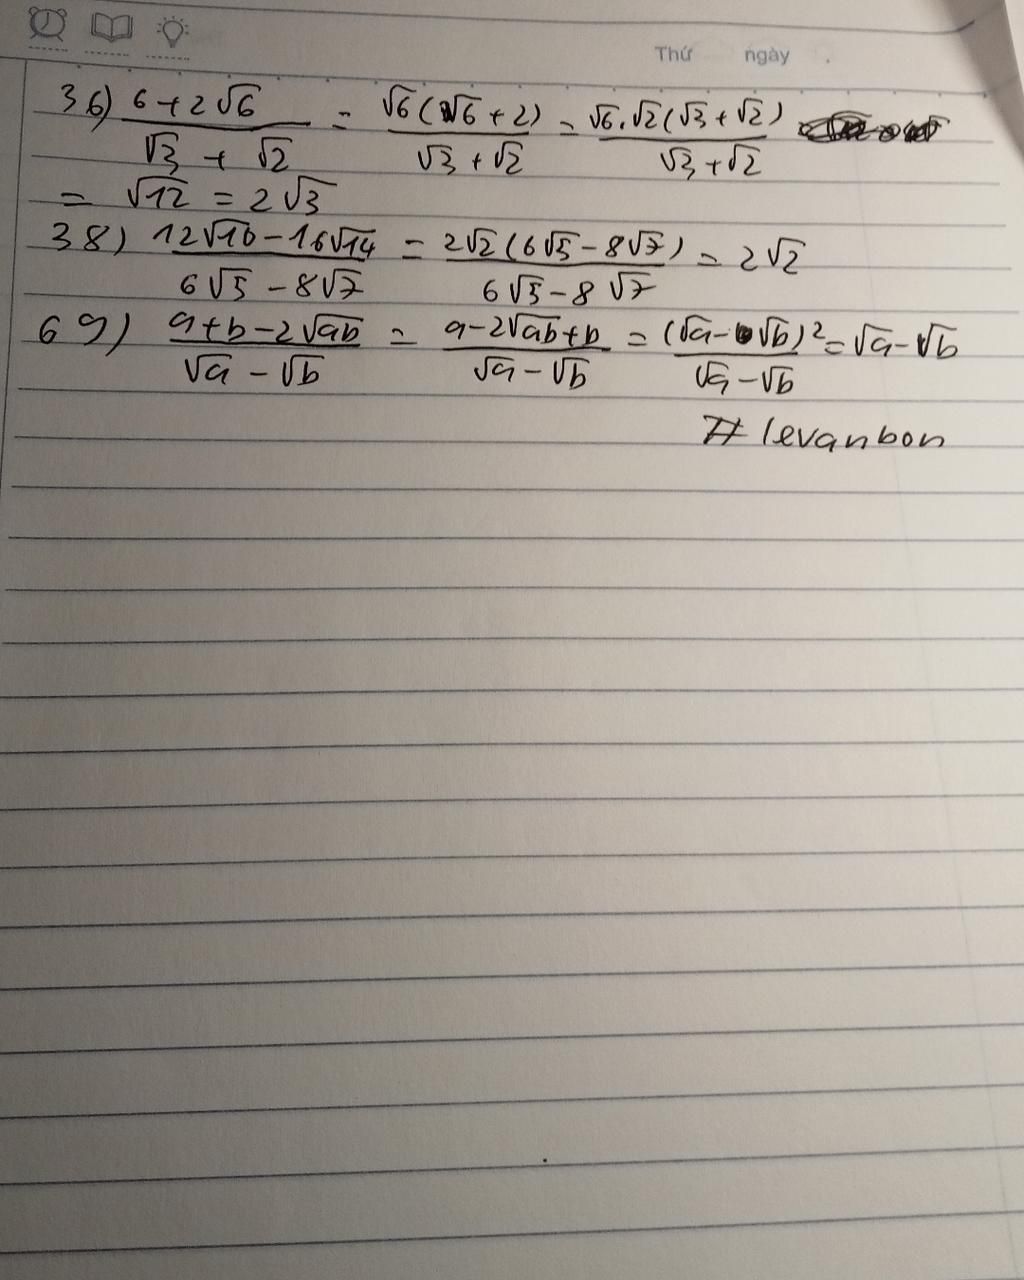 Thứ ngày .
36) (6+2√6)/(√3+√2) = √6(√6+2)/(√3+√2) = √6.√2(√3+√2)/(√3+√2)
= √12 = 2√3
38) (12√10-16√14)/(6√5-8√7) = 2√2(6√5-8√7)/(6√5-8√7) = 2√2
69) (a+b-2√ab)/(√a-√b) = (a-2√ab+b)/(√a-√b) = (√a-√b)²/(√a-√b) = √a-√b
# levanbon